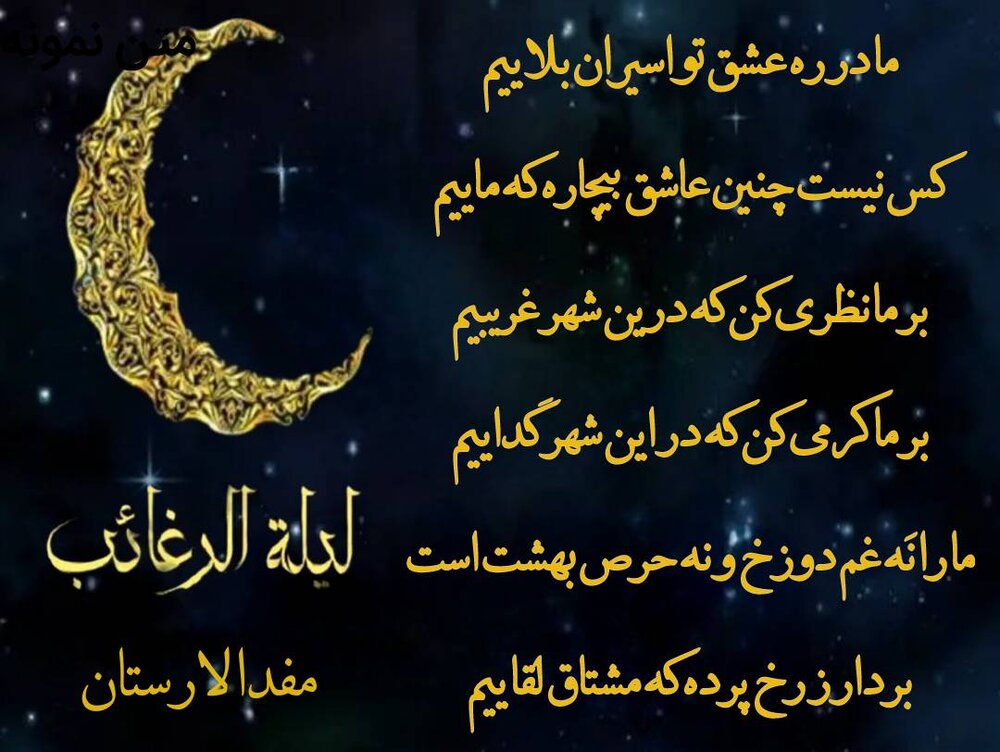 متن نمونه
ما در ره عشق تو اسیران بلاییم
کس نیست چنین عاشق بیچاره که ماییم
بر ما نظری کن که درین شهر غریبیم
بر ما کرمی کن که در این شهر گداییم
ما را نَه غم دوزخ و نه حرص بهشت است
بردار ز رخ پرده که مشتاق لقاییم
لیلة الرغائب
مفدالارستان